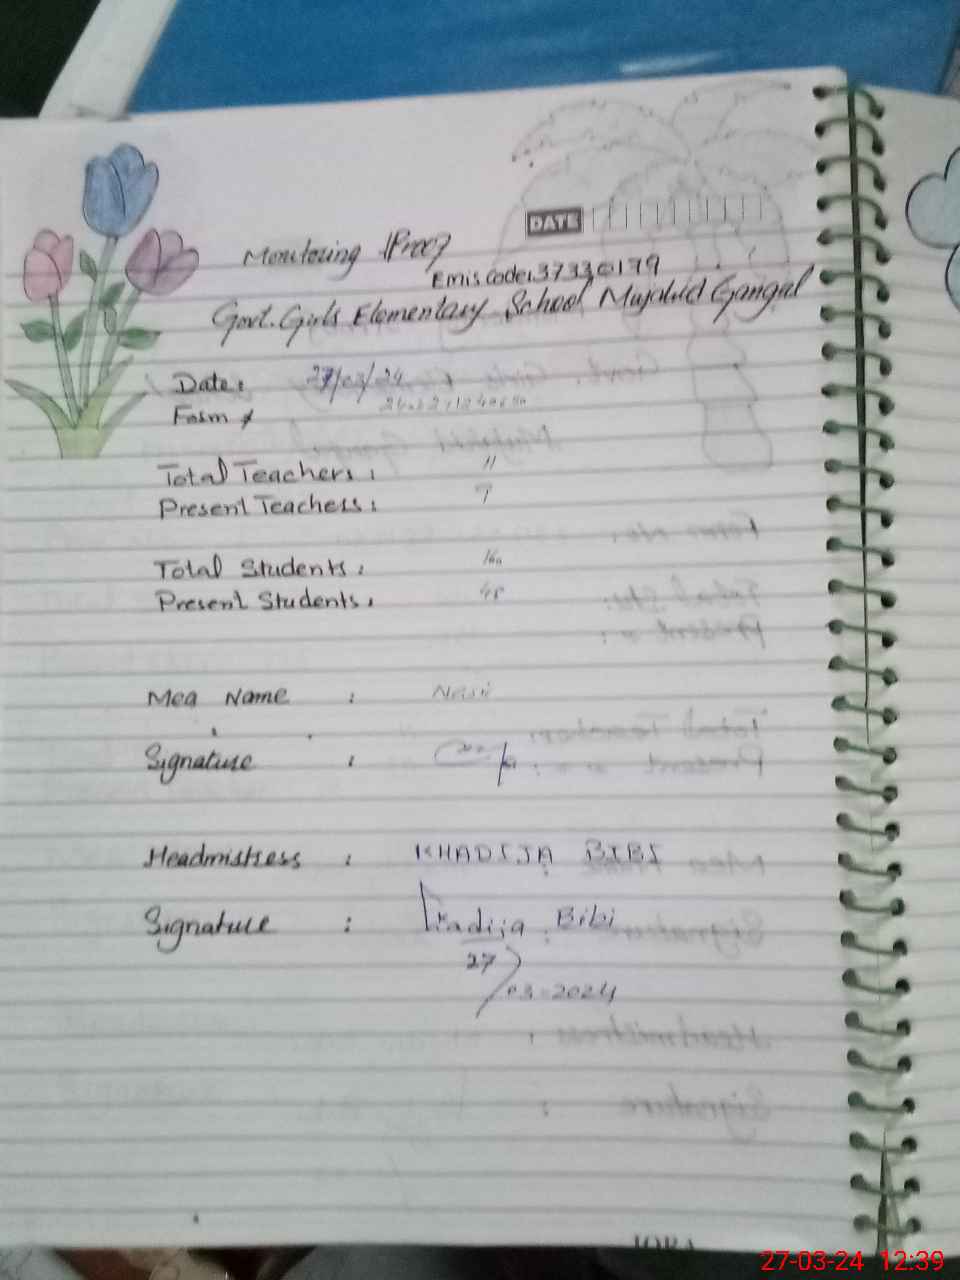 DATE
Monitoring Proof
Emis code: 37330179
Govt. Girls Elementary School Mujahid Gangal
Date: 27/03/24
Form #
Total Teachers: 11
Present Teachers: 7
Total Students:
Present Students:
Mea Name :
Signature :
Headmistress : KHADIJA BIBI
Signature : Khadija Bibi
27/03-2024
27-03-24 12:39